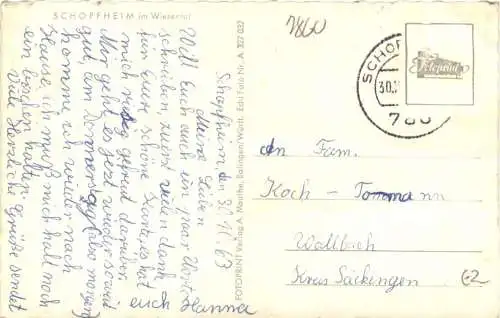 SCHOPFHEIM im Wiesental
Schopfheim, den 30.11.63
Meine Lieben
Will Euch auch ein paar Worte
schreiben, zuerst vielen Dank
für Eure schöne Karte, hat
mich riesig gefreut darüber.
Mir geht es jetzt wieder soweit
gut, am Donnerstag (also morgen)
komme ich wieder nach
Hause, ich muß mich halt noch
ein bischen halten.
Viele Herzliche Grüße sendet
euch Hanna
FOTOPRINT Verlag A. Mauthe, Balingen/Württ. Echt Foto Nr. A 327 032
7860
SCHOPF
30.
786
Fotoprint
An Fam.
Koch - Tommann
Wallbach
Kreis Säckingen
62